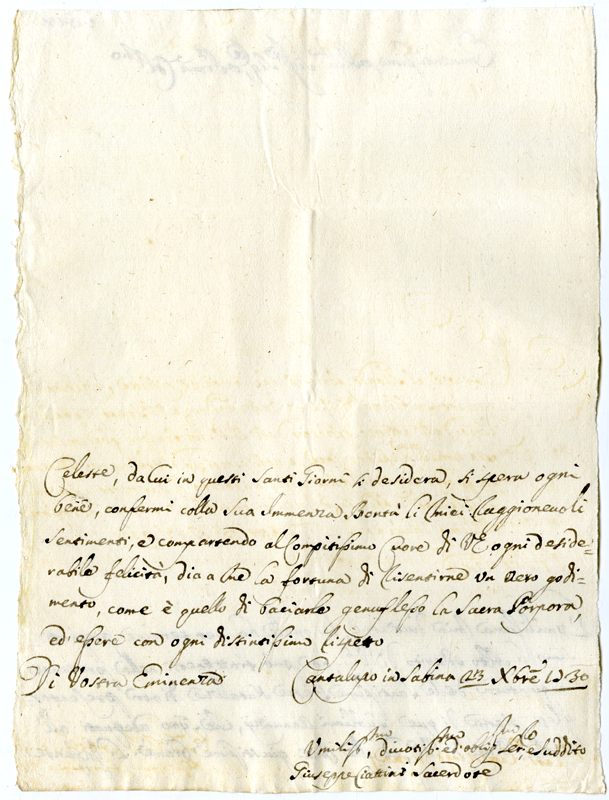 Celeste, da lui in questi santi Giorni si desidera, si spera ogni
bene, confermi colla Sua Immenza Bontà li miei Raggionevoli
sentimenti, e compartendo al Compitissimo Cuore di VE ogni deside=
rabile felicità, dia a me la fortuna di Risentirne un vero godi=
mento, come è quello di baciarle genuflesso la Sacra Porpora,
ed essere con ogni distintissimo Rispetto
Di Vostra Eminenza Cantalupo in Sabina 23 Xbre 1730
Umiliss.mo, divotiss.mo ed obligss.mo Ser.e e suddito
Giuseppe Ciattini Sacerdote